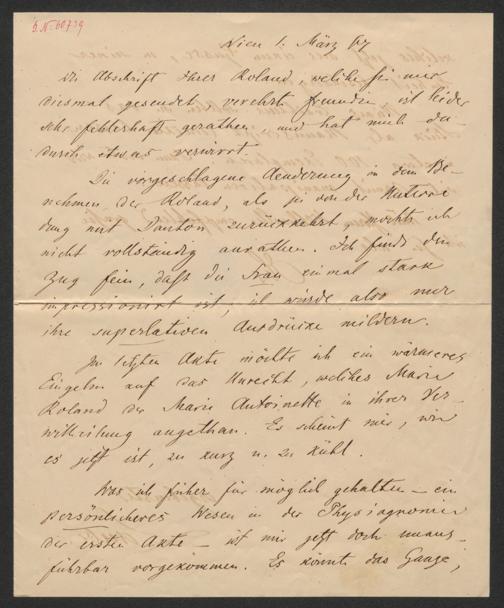 I. N. 60739
Wien 1. März 67
Die Abschrift Ihrer Roland, welche Sie mir
diesmal gesendet verehrte Freundin ist leider
sehr fehlerhaft gerathen, und hat mich da-
durch etwas verwirrt.
Die vorgeschlagene Aenderung in dem Be-
nehmen der Roland, als sie von der Unterre
dung mit Danton zurückkehrt, möchte ich
nicht vollständig anrathen. Ich finde den
Zug fein, daß die Frau einmal stark
impressionirt ist; ich würde also nur
ihre superlativen Ausdrücke mildern.
Im letzten Akte möchte ich ein wärmeres
Eingehn auf das Unrecht, welches Marie
Roland der Marie Antoinette in ihrer Ver-
urtheilung angethan. Es scheint mir, wie
es jetzt ist, zu kurz u. zu kühl.
Was ich früher für möglich gehalten – ein
persönlicheres Wesen in der Physiognomie
der ersten Akte – ist mir jetzt doch unaus-
führbar vorgekommen. Es könnte das Ganze,